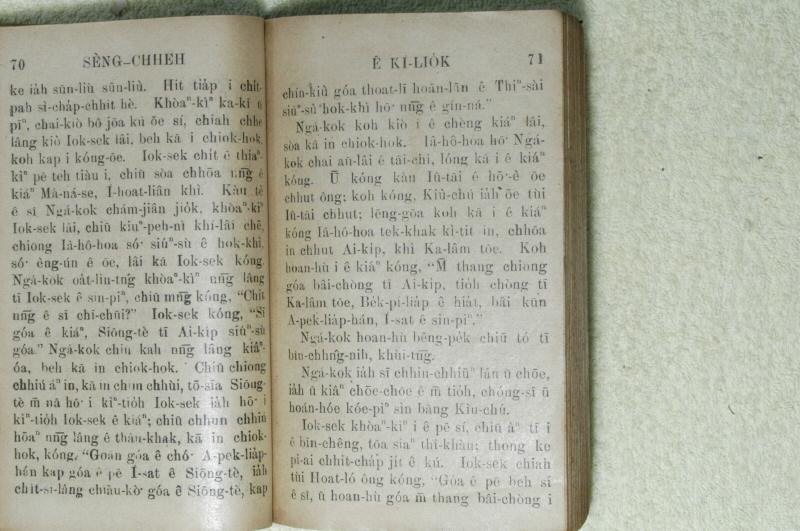 70 SÈNG-CHHEH
ke iáh sūn-liù sūn-liù. Hit tiáp i chit-
pah sì-cháp-chhit hè. Khòaⁿ-kìⁿ ka-kī ū
pīⁿ, chai-kiò bô jōa kú ōe sí, chiah chhe
lâng kiò Iok-sek lâi, beh kā i chiok-hok,
koh kap i kóng-ōe. Iok-sek chit ê thiaⁿ-
kìⁿ pē teh tiàu i, chiū sòa chhōa nn̄g ê
kiáⁿ Mà-ná-se, Í-hoat-liân khì. Kàu tè
ê sî Ngá-kok chám-jiân jiók, khòaⁿ-kìⁿ
Iok-sek lâi, chiū kiuⁿ-peh-nì khí-lâi chē,
chiong Iâ-hô-hoa só͘ siúⁿ-sù ê hok-khì,
só͘ èng-ún ê ōe, lâi kā Iok-sek kóng.
Ngá-kok oát-lìn-tńg khòaⁿ-kìⁿ nn̄g lâng
tī Iok-sek ê sin-piⁿ, chiū mn̄g kóng, “Chit
nn̄g ê sī chī-chūi?” Iok-sek kóng, “Sī
góa ê kiáⁿ, Siōng-tè tī Ai-kip siúⁿ-sù
góa.” Ngá-kok chiū kah nn̄g lâng kiâⁿ-
óa, beh kā in chiok-hok. Chiū chiong
chhiú áⁿ in, kā in chim chhùi, tō-siā Siōng-
tè m̄ nā hō͘ i kìⁿ-tióh Iok-sek iáh hō͘ i
kìⁿ-tióh Iok-sek ê kiáⁿ; chiū chhun chhiú
hōaⁿ nn̄g lâng ê thâu-khak, kā in chiok-
hok, kóng, “Goán góa ê chó͘ A-pek-liáp-
hán kap góa ê pē Í-sat ê Siōng-tè, iáh
chit-sì-lâng chiàu-kò͘ góa ê Siōng-tè, kap
Ê KÌ-LIÓK 71
chín-kiù góa thoat-lī hoān-lān ê Thiⁿ-sài
siúⁿ-sù hok-khì hō͘ nn̄g ê gín-ná.”
Ngá-kok koh kiò i ê chèng kiáⁿ lâi,
sòa kā in chiok-hok. Iâ-hô-hoa hō͘ Ngá-
kok chai aū-lâi ê tāi-chì, lóng kā i ê kiáⁿ
kóng. Ū kóng kàu Iû-tāi ê hō͘-ē ōe
chhut ông; koh kóng, Kiù-chú iáh ōe tùi
Iû-tāi chhut; lēng-gōa koh kā i ê kiáⁿ
kóng Iâ-hô-hoa tek-khak kì-tit in, chhōa
in chhut Ai-kip, khì Ka-lâm tōe. Koh
hoan-hù i ê kiáⁿ kóng, “M̄ thang chiong
góa bâi-chòng tī Ai-kip, tióh chòng tī
Ka-lâm tōe, Bék-pí-liáp ê hiát, bâi kūn
A-pek-liáp-hán, Í-sat ê sin-piⁿ.”
Ngá-kok hoan-hù bêng-pék chiū tó tī
bîn-chhn̂g-nih, khùi-tn̄g.
Ngá-kok iáh sī chhin-chhiūⁿ lán ū chōe,
iáh ū kiáⁿ chōe-chōe ê m̄ tióh, chóng-sī ū
hoán-hóe kóe-piⁿ sìn bāng Kiù-chú.
Iok-sek khòaⁿ-kìⁿ i ê pē sí, chiū áⁿ tī i
ê bīn-chêng, tōa siaⁿ thî-khàu; thong ke
pi-ai chhit-cháp jit ê kú. Iok-sek chiah
tùi Hoat-ló ông kóng, “Góa ê pē beh sí
ê sî, ū hoan-hù góa m̄ thang bâi-chòng i